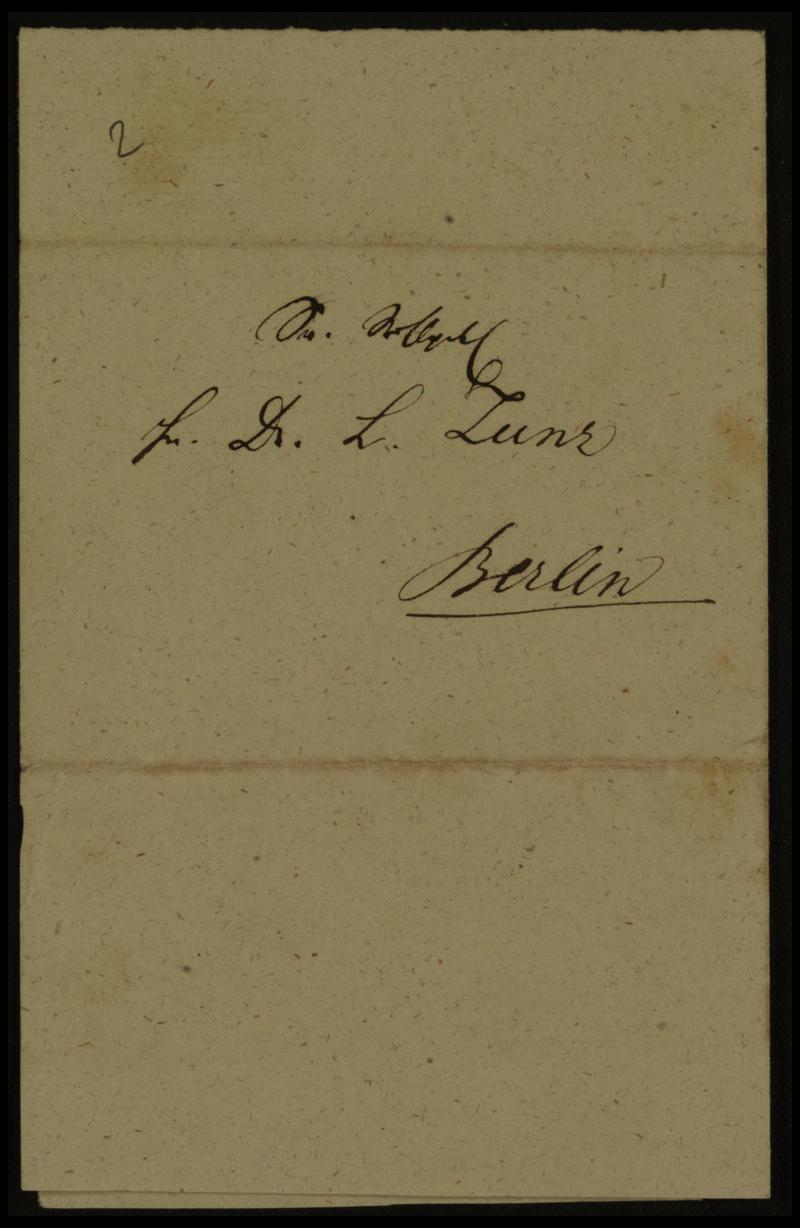 2
Sr.
Hr. Dr. L. Zunz
Berlin